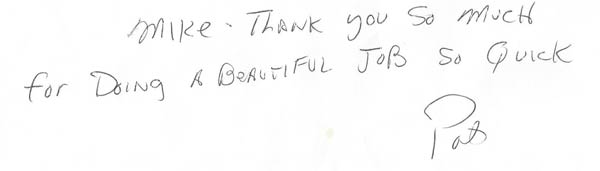 Mike - Thank you so much
for Doing A Beautiful Job so Quick
Pat